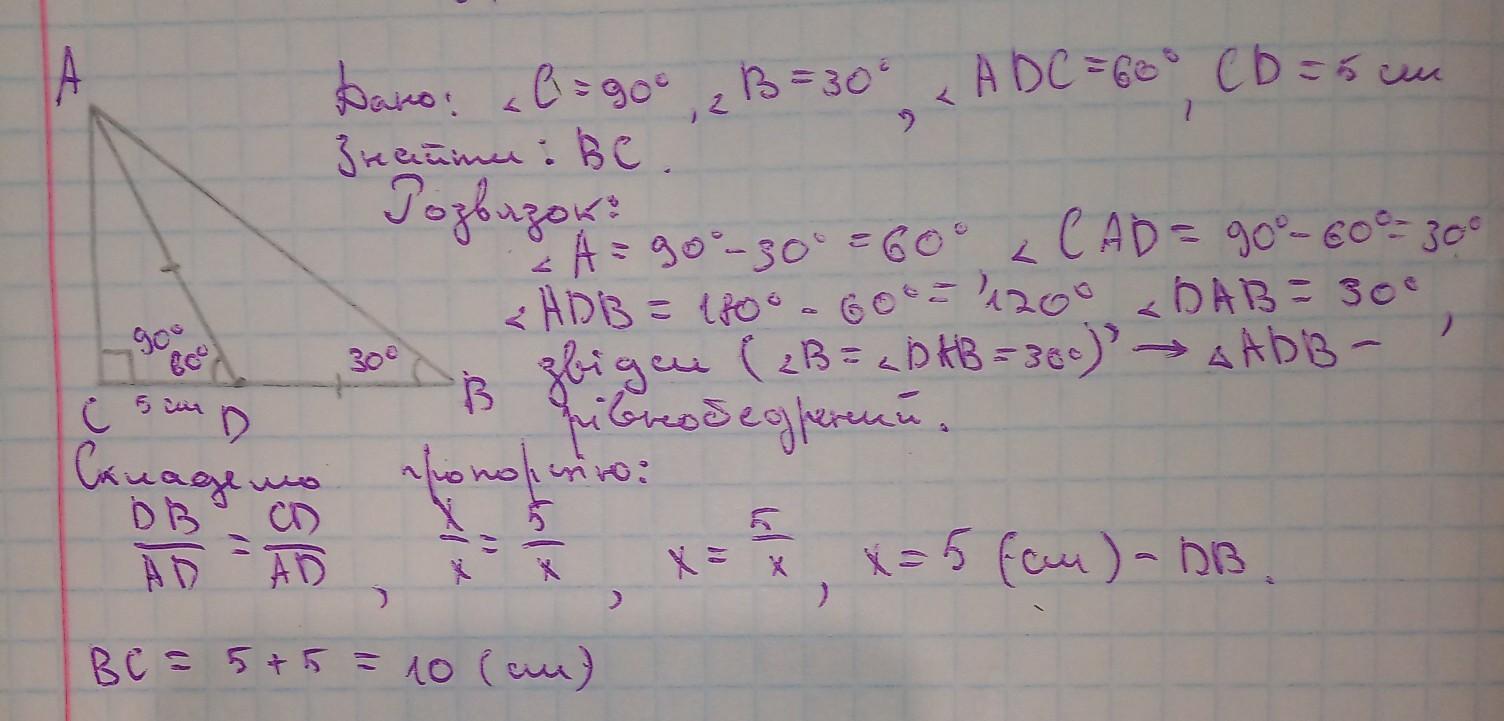 A
Дано: ∠C = 90°, ∠B = 30°, ∠ADC = 60°, CD = 5 см
Знайти: BC.
Розвязок:
∠A = 90° - 30° = 60° ∠CAD = 90° - 60° = 30°
∠ADB = 180° - 60° = 120°, ∠DAB = 30°,
90° 60° 30°
звідси (∠B = ∠DAB = 30°) → △ADB -
C 5 см D B
рівнобедрений.
Складемо пропорцію:
DB/AD = CD/AD, x/x = 5/x, x = 5/x, x = 5 (см) - DB.
BC = 5 + 5 = 10 (см)